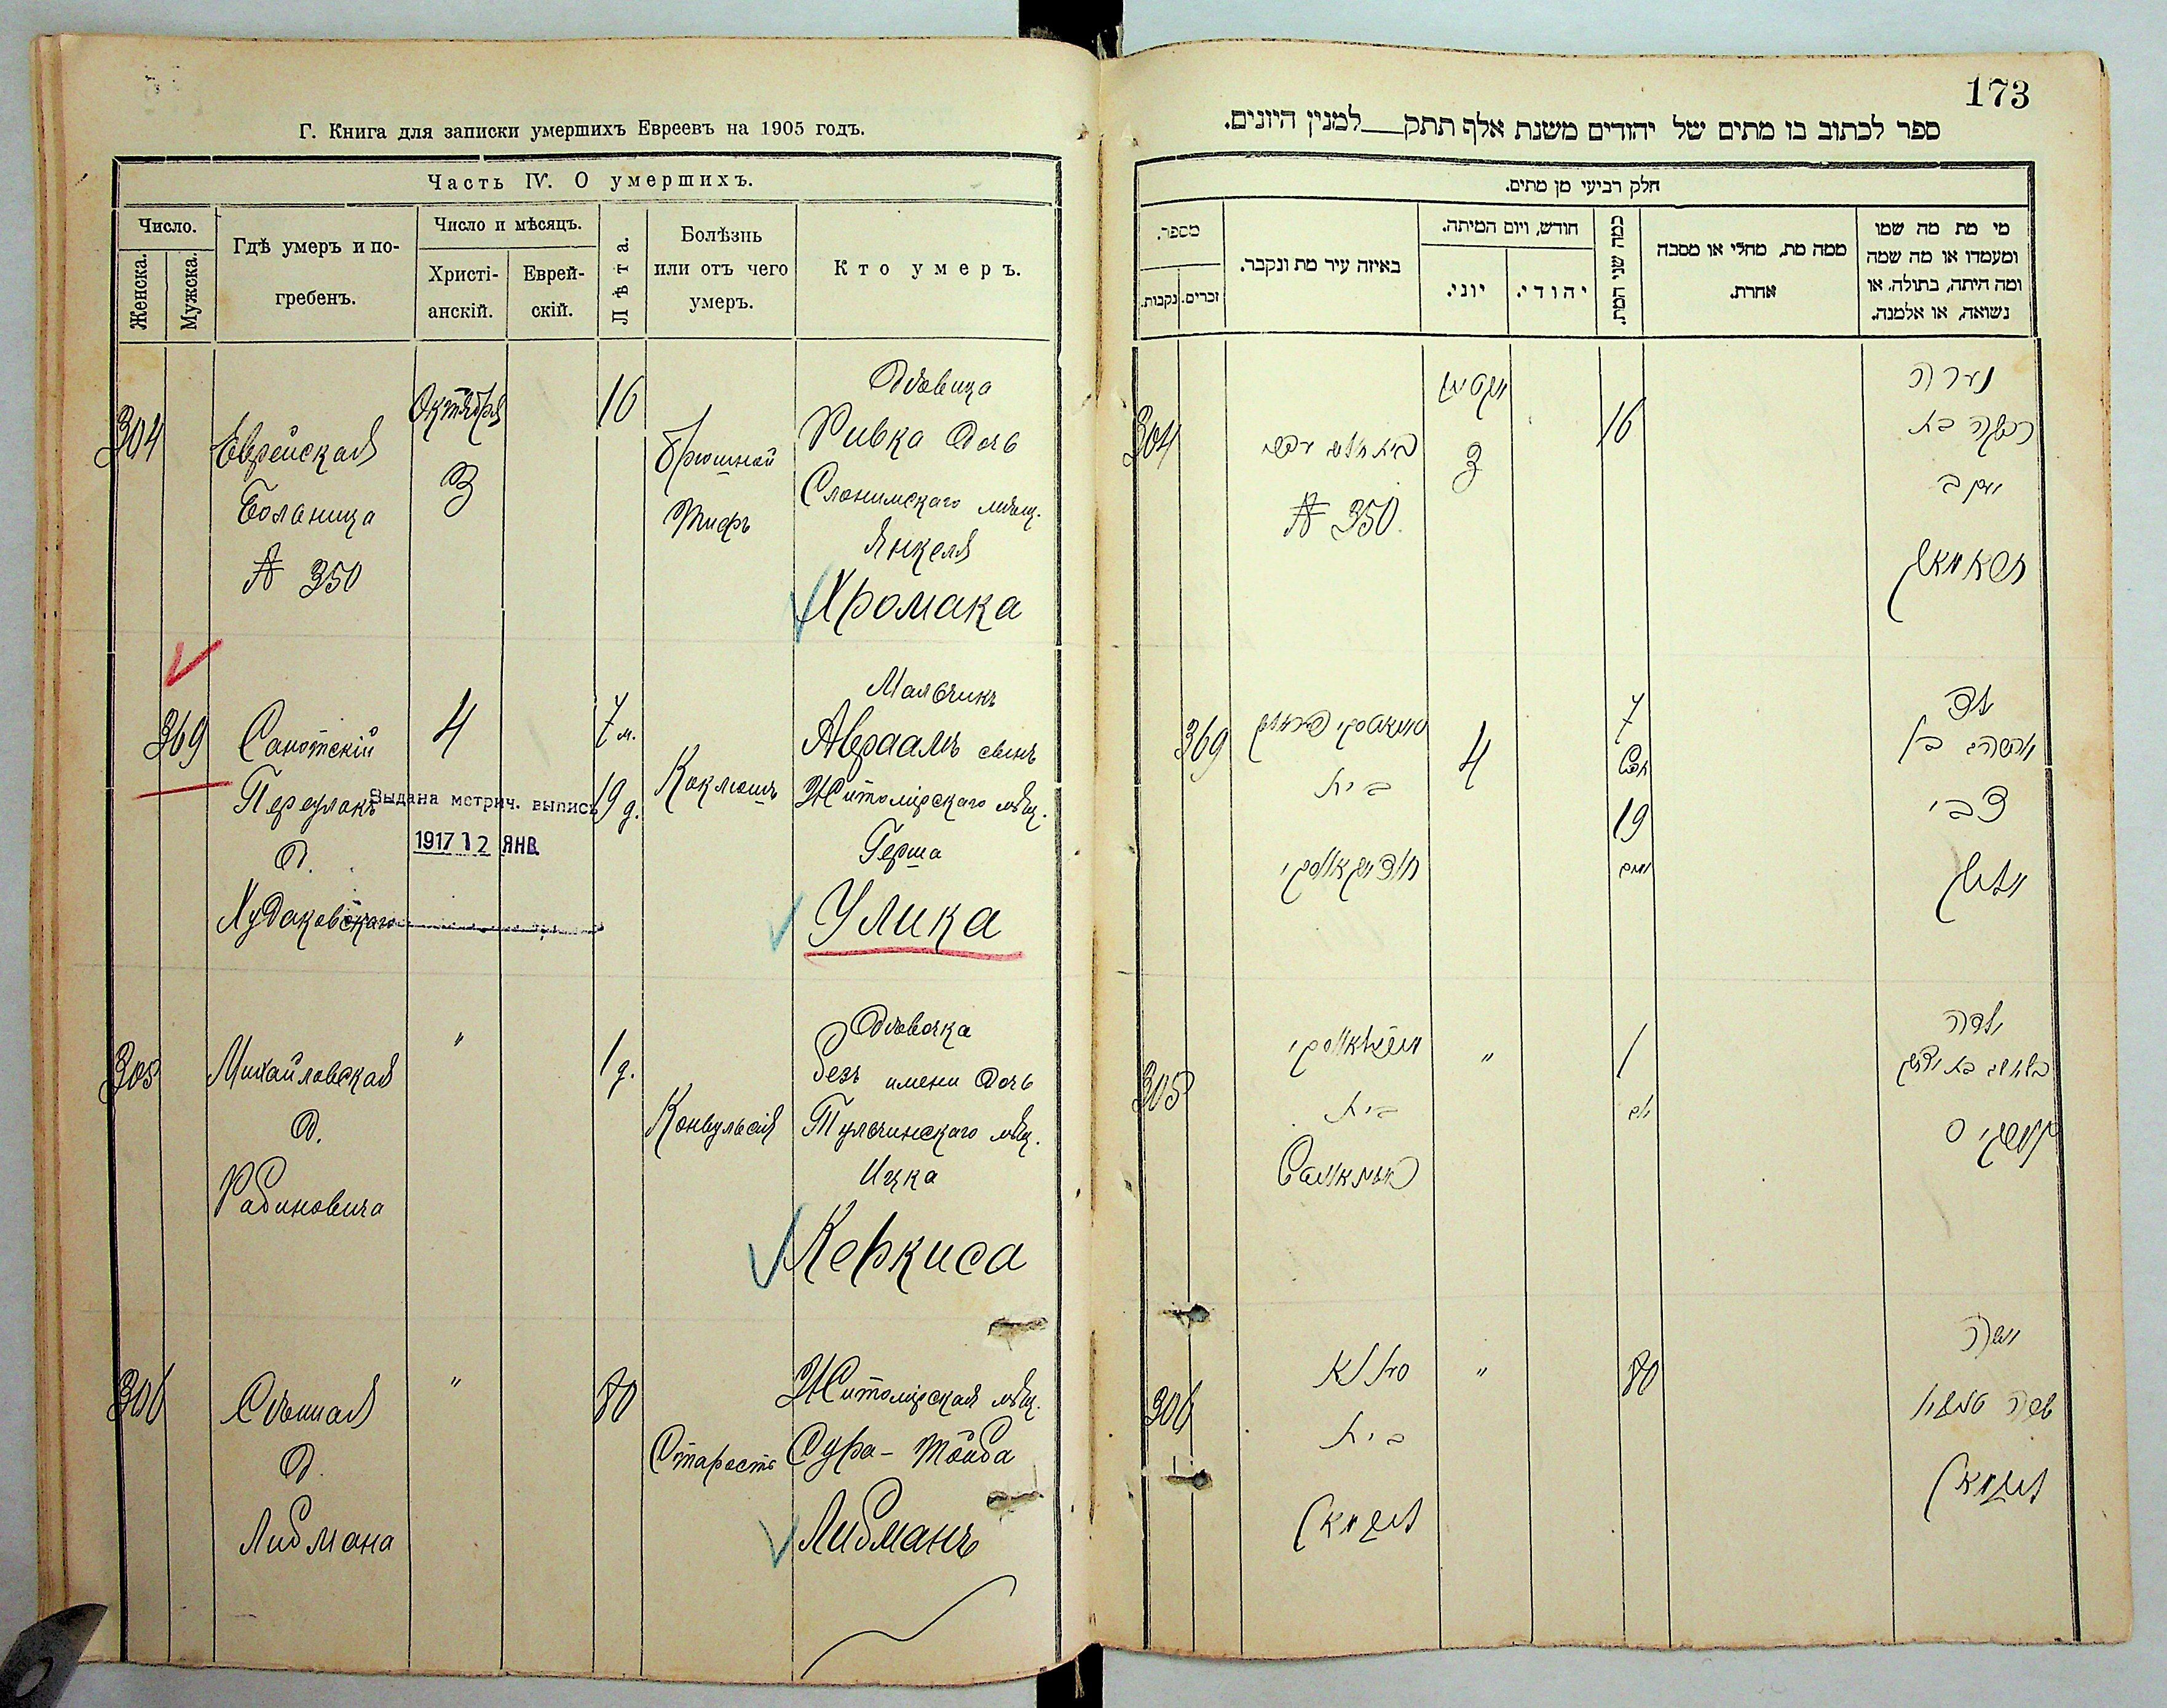 Г. Книга для записки умершихъ Евреевъ на 1905 годъ.
Часть IV. О умершихъ.
Число.
Женска.
Мужска.
Гдѣ умеръ и по-
гребенъ.
Число и мѣсяцъ.
Христі-
анскій.
Еврей-
скій.
Лѣта.
Болѣзнь
или отъ чего
умеръ.
Кто умеръ.
304
Еврейская
Болница
№ 350
Октября
3
16
Брюшной
Тифъ
Дѣвица
Ривка дочь
Слонимскаго мѣщ.
Янкеля
Хромака
369
Переулокъ
д.
Худаковскаго
4
7 м.
19 д.
Коклюшъ
Мальчикъ
Авраамъ сынъ
Житомірскаго мѣщ.
Герша
Улика
Выдана метрич. выпись
1917 12 ЯНВ
305
Михайловская
д.
Рабиновича
"
1 д.
Конвульсія
Дѣвочка
безъ имени дочь
Тульчинскаго мѣщ.
Ицка
Керкиса
306
Сѣнная
д.
Либмана
"
80
Старость
Житомірская мѣщ.
Сура-Тойба
Либманъ
173
ספר לכתוב בו מתים של יהודים משנת אלף תתק למנין היונים.
חלק רביעי מן מתים.
מי מת מה שמו
ומעמדו או מה שמה
ומה היתה, בתולה, או
נשואה, או אלמנה.
ממה מת, מחלי או מסבה
אחרת.
כמה שני המת.
חודש, ויום המיתה.
יהודי.
יוני.
באיזה עיר מת ונקבר.
מספר.
זכרים.
נקבות.
נערה
רבקה בת
יעקב
16
3
№ 350
304
ילד
בן
צבי
7
19
ימים
4
בית
369
ילדה
1
יום
"
בית
305
שרה
ליבמאן
80
"
בית
ליבמאן
306